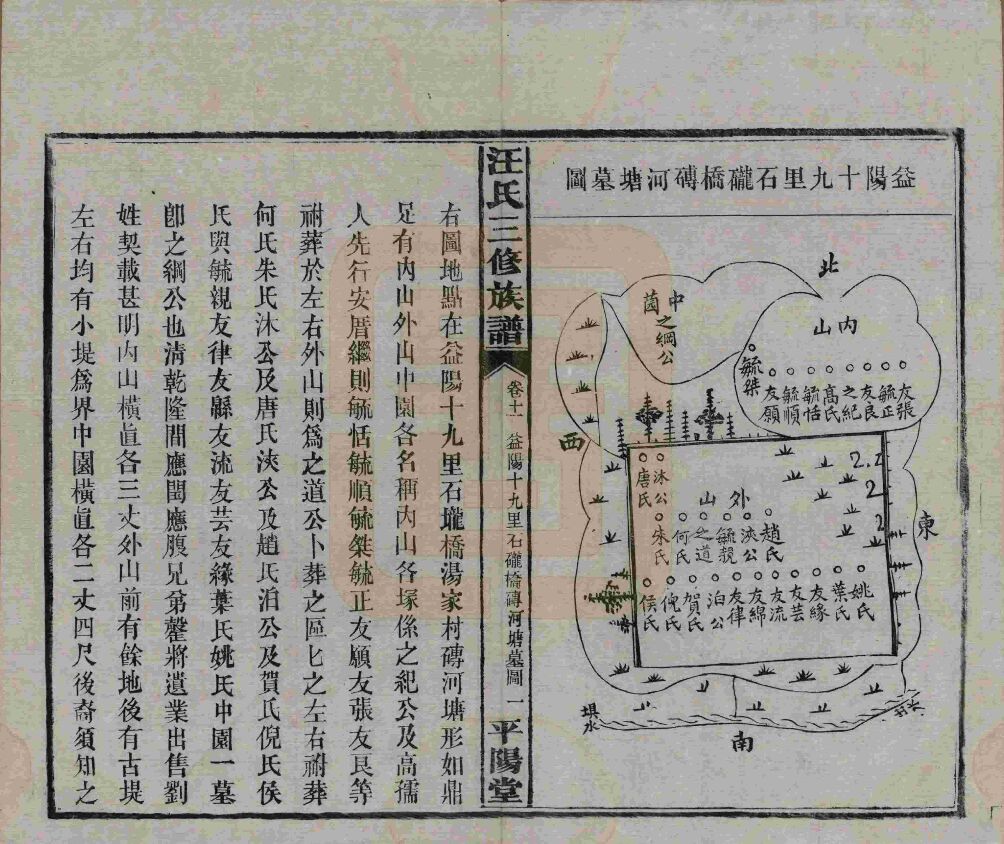 益陽十九里石礲橋磚河塘墓圖
北
中
園
之綱公
內山
毓桀
友願
毓順
毓恬
高氏
之紀
友良
毓正
友張
西
東
唐氏
沐公
外山
朱氏
何氏
之道
毓親
浹公
趙氏
侯氏
倪氏
賀氏
泊公
友律
友綿
友流
友芸
友緣
葉氏
姚氏
垻水
南
汪氏三修族譜
卷十一
益陽十九里石礲橋磚河塘墓圖
一
平陽堂
右圖地點在益陽十九里石壠橋湯家村磚河塘形如鼎
足有內山外山中園各名稱內山各塚係之紀公及高孺
人先行安厝繼則毓恬毓順毓桀毓正友願友張友良等
祔葬於左右外山則爲之道公卜葬之區匕之左右祔葬
何氏朱氏沐公及唐氏浹公及趙氏泊公及賀氏倪氏侯
氏與毓親友律友緜友流友芸友緣葉氏姚氏中園一墓
卽之綱公也清乾隆間應閏應腹兄弟罄將遺業出售劉
姓契載甚明內山橫直各三丈外山前有餘地後有古堤
左右均有小堤爲界中園橫直各二丈四尺後裔須知之